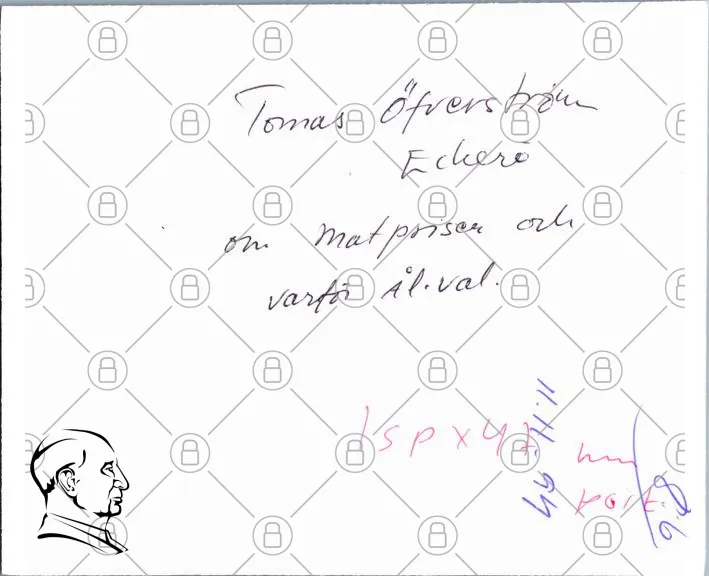 Tomas Öfverström
Eckerö
om matpriser och
varför ål.val.
1 sp x 47